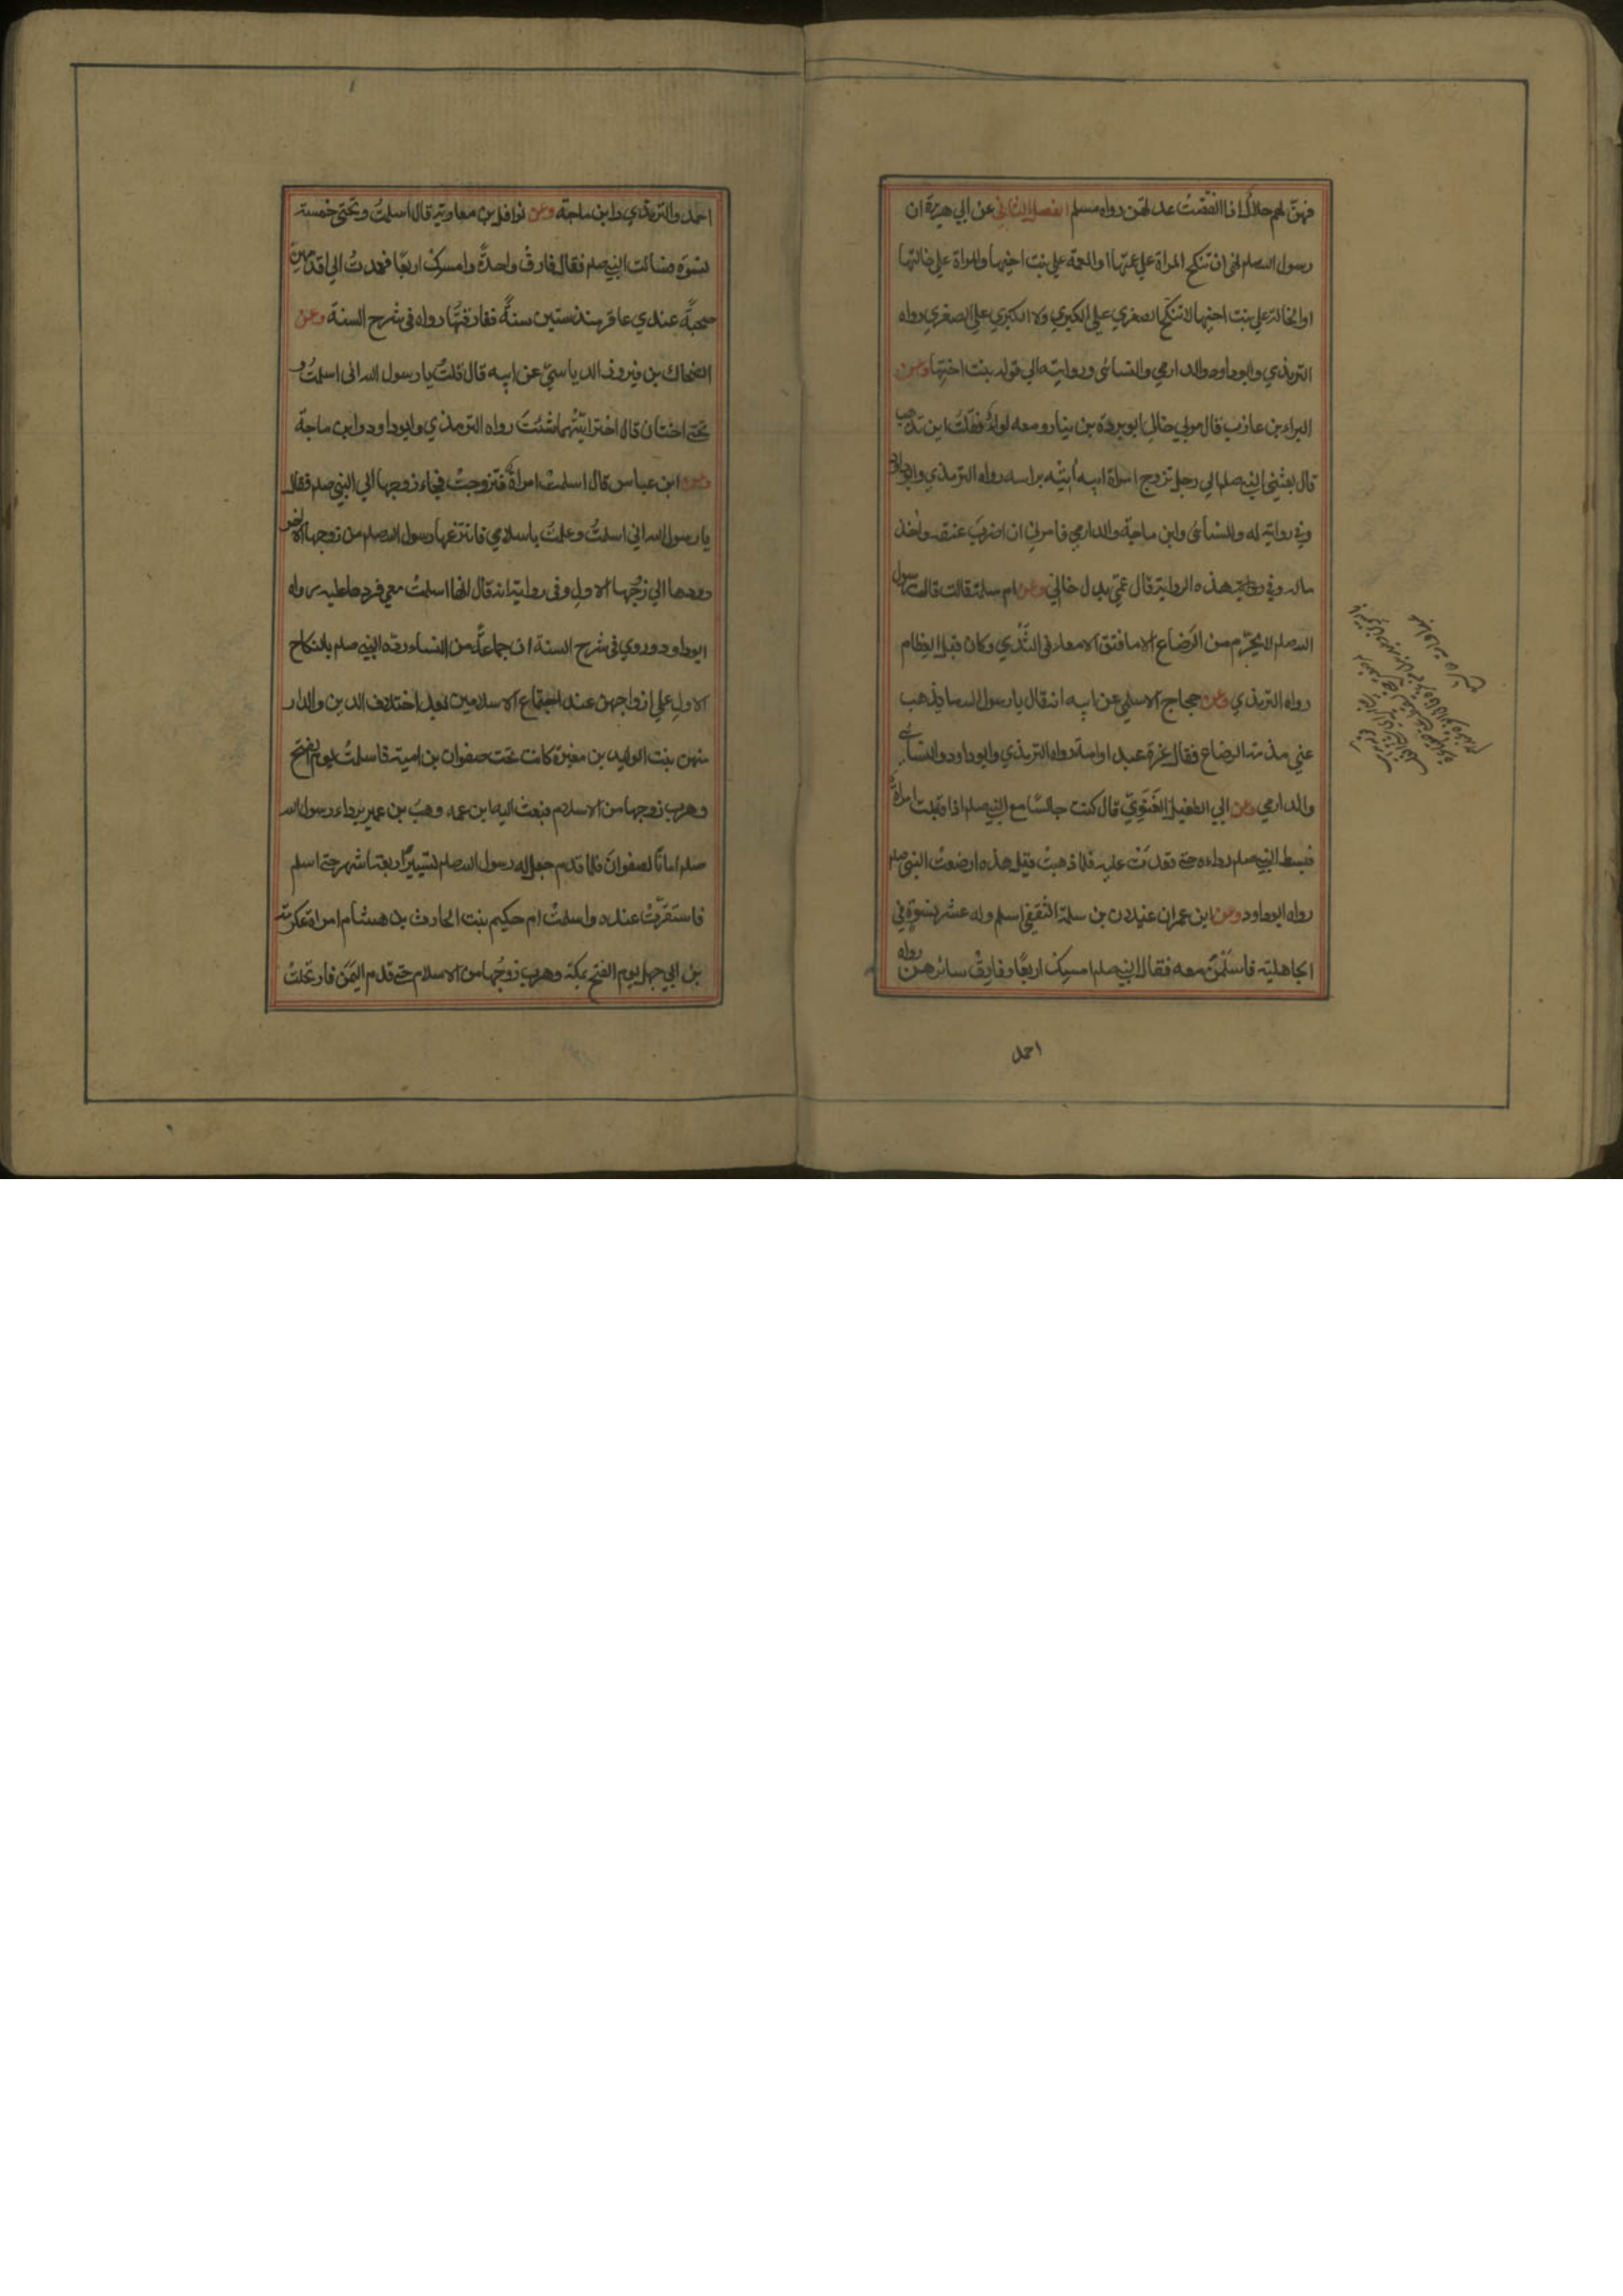 فهنّ لهم حلالٌ اذا انقضت عدتهن رواه مسلم الفصل الثاني عن ابي هريرة ان
رسول الله صلم نهى ان تنكح المراة علي عمتها او العمة علي بنت اخيها والمراة علي خالتها
او الخالة علي بنت اختها لا تنكح الصغري علي الكبري ولا الكبري علي الصغري رواه
الترمذي وابو داود والدارمي والنسائي وروايته الي قوله بنت اختها وعن
البراء بن عازب قال مر بي خالي ابو بردة بن نيار ومعه لواءٌ فقلت اين تذهب
قال بعثني النبي صلم الي رجل تزوج امراة ابيه اٰتيه براسه رواه الترمذي وابو داود
وفي رواية له وللنسائي وابن ماجة والدارمي فامرني ان اضرب عنقه واٰخذ
ماله وفي هذه الرواية قال عمّي بدل خالي وعن ام سلمة قالت قال رسول
الله صلم لا يحرّم من الرضاع الا ما فتق الامعاء في الثدي وكان قبل الفطام
رواه الترمذي وعن حجاج الاسلمي عن ابيه انه قال يا رسول الله ما يذهب
عني مذمة الرضاع فقال غرة عبد او امة رواه الترمذي وابو داود والنسائي
والدارمي وعن ابي الطفيل الغَنَوِيّ قال كنت جالسًا مع النبي صلم اذا اقبلت امراةٌ
فبسط النبي صلم رداءه حتى قعدت عليه فلما ذهبت قيل هذه ارضعت النبي صلم
رواه ابو داود وعن ابن عمر ان غيلان بن سلمة الثقفي اسلم وله عشر نسوة في
الجاهلية فاسلمن معه فقال النبي صلم امسك اربعًا وفارق سائرهن رواه
احمد
احمد والترمذي وابن ماجة وعن نوافل بن معاوية قال اسلمت وتحتي خمسة
نسوة فسالت النبي صلم فقال فارق واحدةً وامسك اربعًا فعمدت الي اقدمهن
صحبةً عندي عاقر منذ ستين سنةً ففارقتها رواه في شرح السنة وعن
الضحاك بن فيروز الديلمي عن ابيه قال قلت يا رسول الله انى اسلمت و
تحتي اختان قال اختر ايّتهما شئت رواه الترمذي وابو داود وابن ماجة
وعن ابن عباس قال اسلمت امراةٌ فتزوجت فجاء زوجها الي النبي صلم فقال
يا رسول الله اني اسلمت وعلمت باسلامي فانتزعها رسول الله صلم من زوجها الاخر
وردها الي زوجها الاول وفي رواية انه قال انها اسلمت معي فردها عليه رواه
ابو داود وروي في شرح السنة ان جماعةً من النساء ردهن النبي صلم بالنكاح
الاول علي ازواجهن عند اجتماع الاسلامين بعد اختلاف الدين والدار
منهن بنت الوليد بن مغيرة كانت تحت صفوان بن امية فاسلمت يوم الفتح
وهرب زوجها من الاسلام فبعث اليه ابن عمه وهب بن عمير برداء رسول الله
صلم امانًا لصفوان فلما قدم جعل له رسول الله صلم تسيير اربعة اشهر حتى اسلم
فاستقرّت عنده واسلمت ام حكيم بنت الحارث بن هشام امراة عكرمة
بن ابي جهل يوم الفتح بمكة وهرب زوجها من الاسلام حتى قدم اليمن فارتحلت